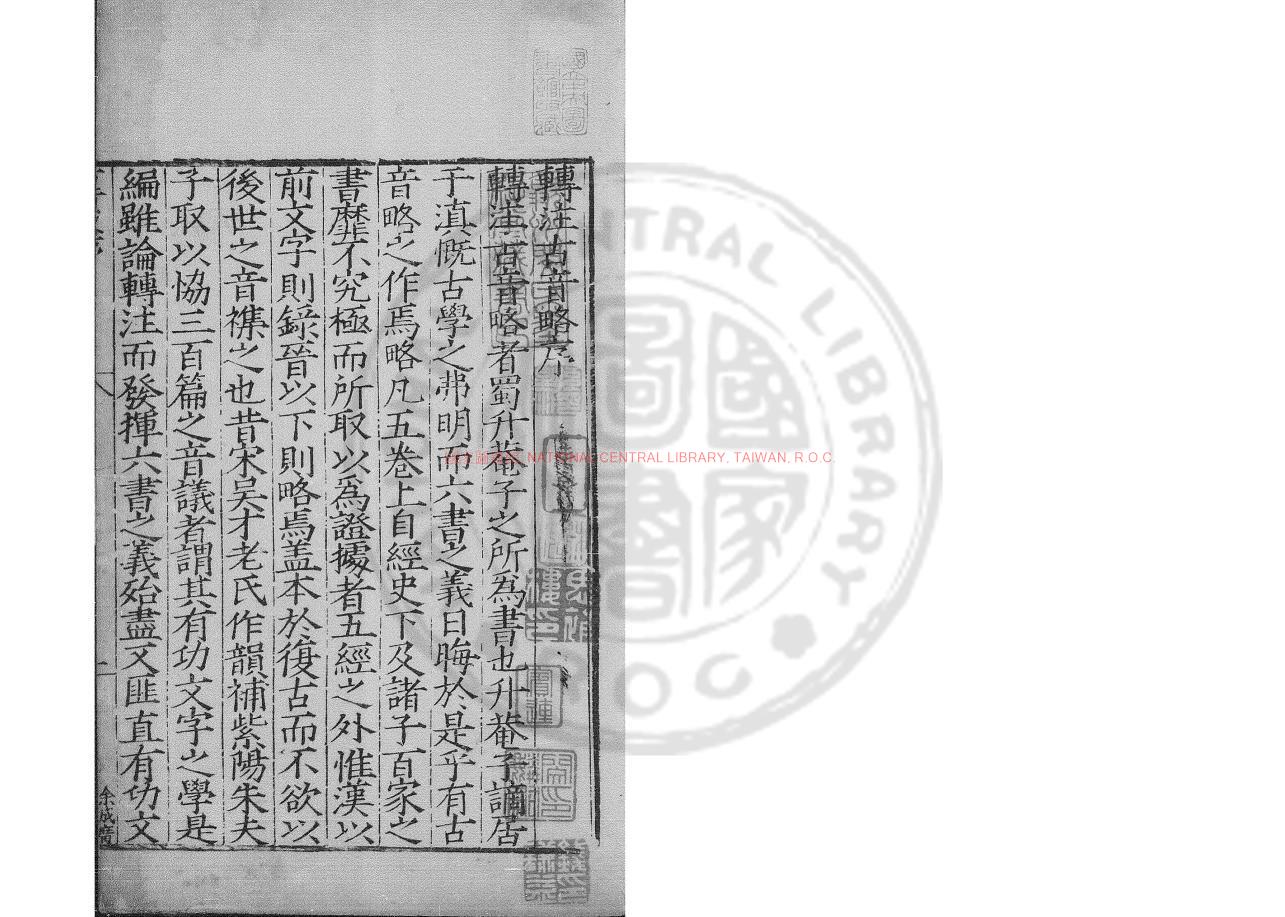 轉注古音略序
轉注古音略者蜀升菴子之所爲書也升菴子謫居
于滇慨古學之弗明而六書之義日晦於是乎有古
音略之作焉略凡五卷上自經史下及諸子百家之
書靡不究極而所取以為證據者五經之外惟漢以
前文字則錄晉以下則略焉盖本於復古而不欲以
後世之音襍之也昔宋吴才老氏作韻補紫陽朱夫
子取以恊三百篇之音議者謂其有功文字之學是
編雖論轉注而發揮六書之義始盡又匪直有功文
余成廣
NATIONAL CENTRAL LIBRARY, TAIWAN, R.O.C.
國家圖書館
CENTRAL LIBRARY
R.O.C.